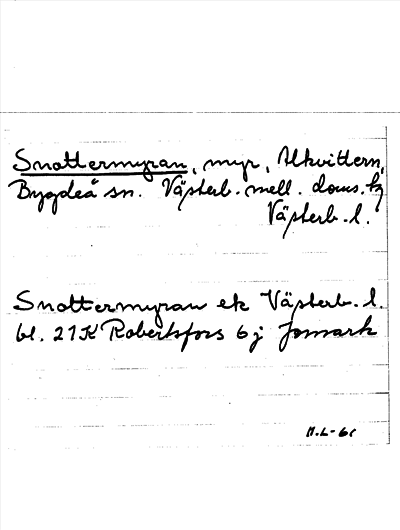 Snottermyran, myr, Utkvittern,
Bygdeå sn. Västerb. mell. doms.
Västerb. l.
Snottermyran ek Västerb. l.
bl. 21K Robertsfors 6j